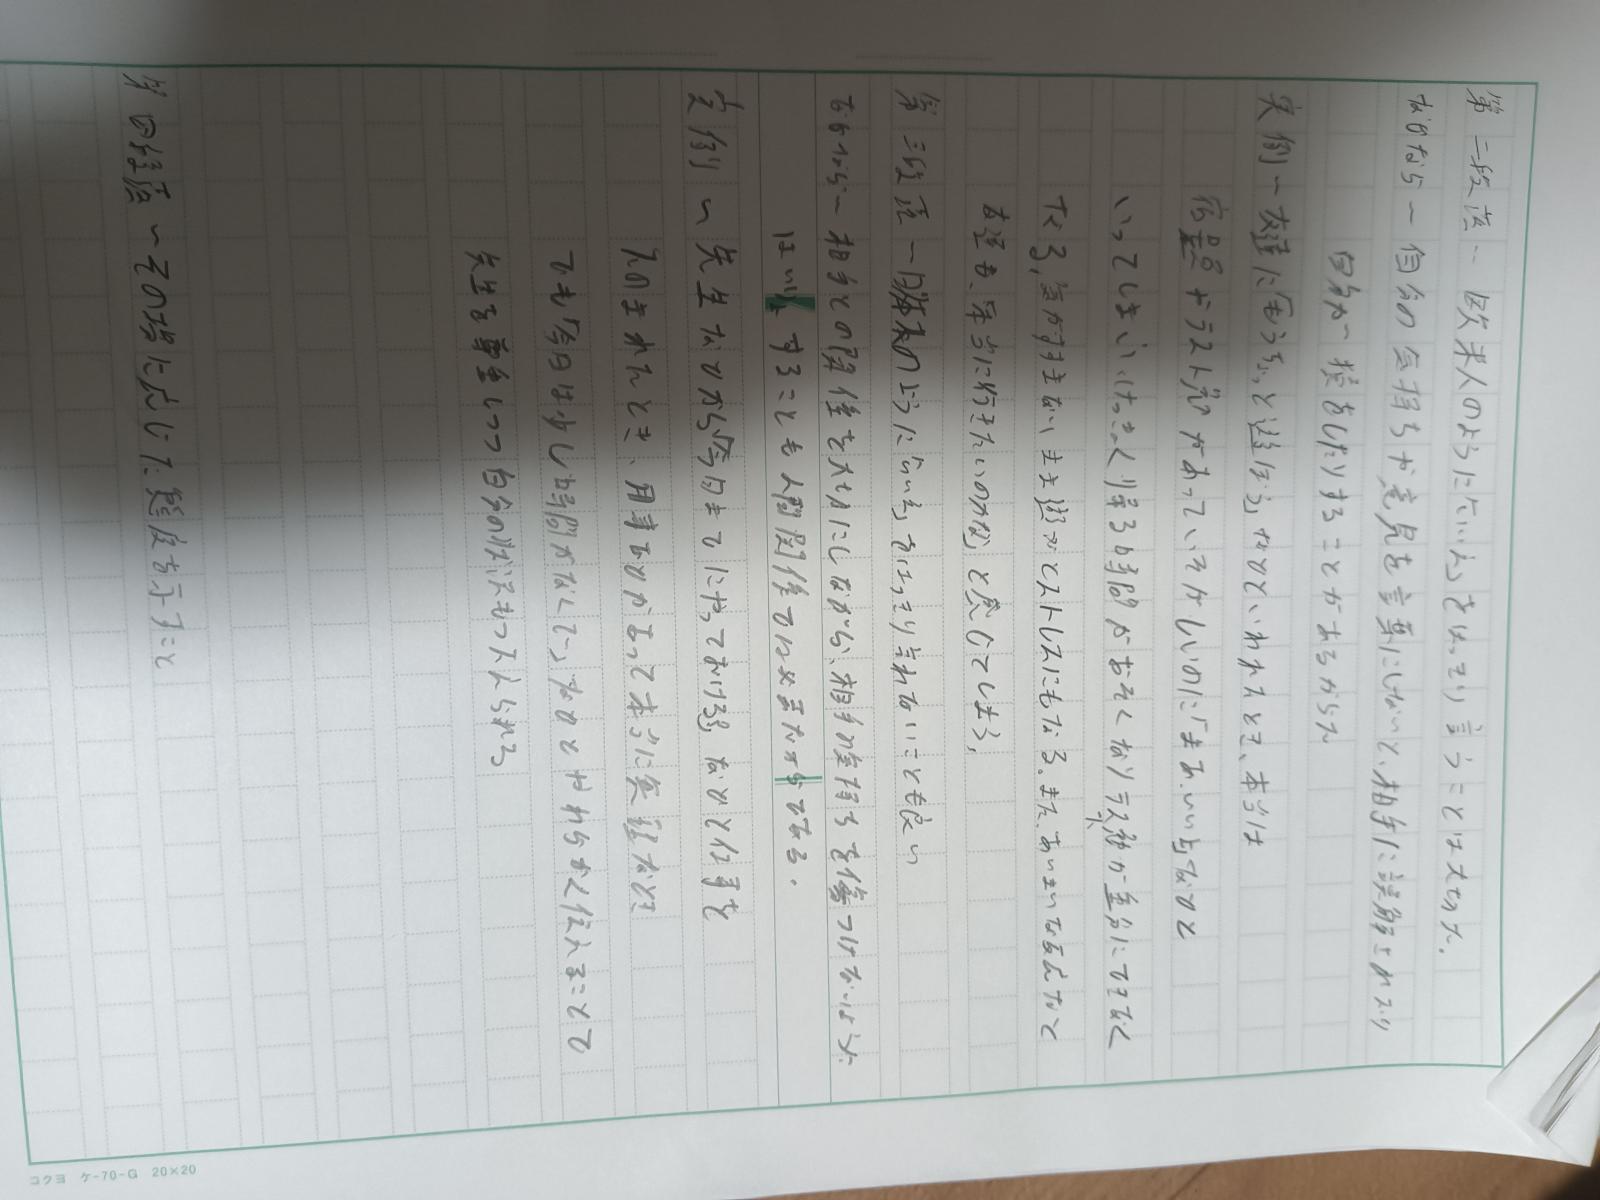 第二段落‥ 欧米人のように「いいえ」をはっきり言うことは大切だ。
なぜなら～自分の気持ちや意見を言葉にしないと、相手に誤解されたり
自分が損をしたりすることがあるからだ
実例～友達に「もう少し遊ぼう」などといわれたとき、本当は
宿題やテスト勉があっていそがしいのに「まあ、いいよ」などと
いってしまいけっきょく帰る時間がおそくなりテスト勉が十分にできなく
なる。気がすすまないまま遊ぶとストレスにもなる。また、あいまいな返事だと
友達も、本当に行きたいのかな、と感じてしまう。
第三段落～日本人のように「いいえ」をはっきり言わないことも良い
なぜなら～相手との関係を大切にしながら、相手の気持ちを傷つけないように
はいりょすることも人間関係では必要だからである。
実例～先生などから「今日までにやっておける?」などと仕事を
たのまれたとき、用事などがあって本当に無理な時
でも「今日は少し時間がなくて…」などとやわらかく伝えることで
先生を尊重しつつ自分の状況もつたえられる
第四段落～その場に応じた態度を示すこと
コクヨ ケ-70-G 20×20